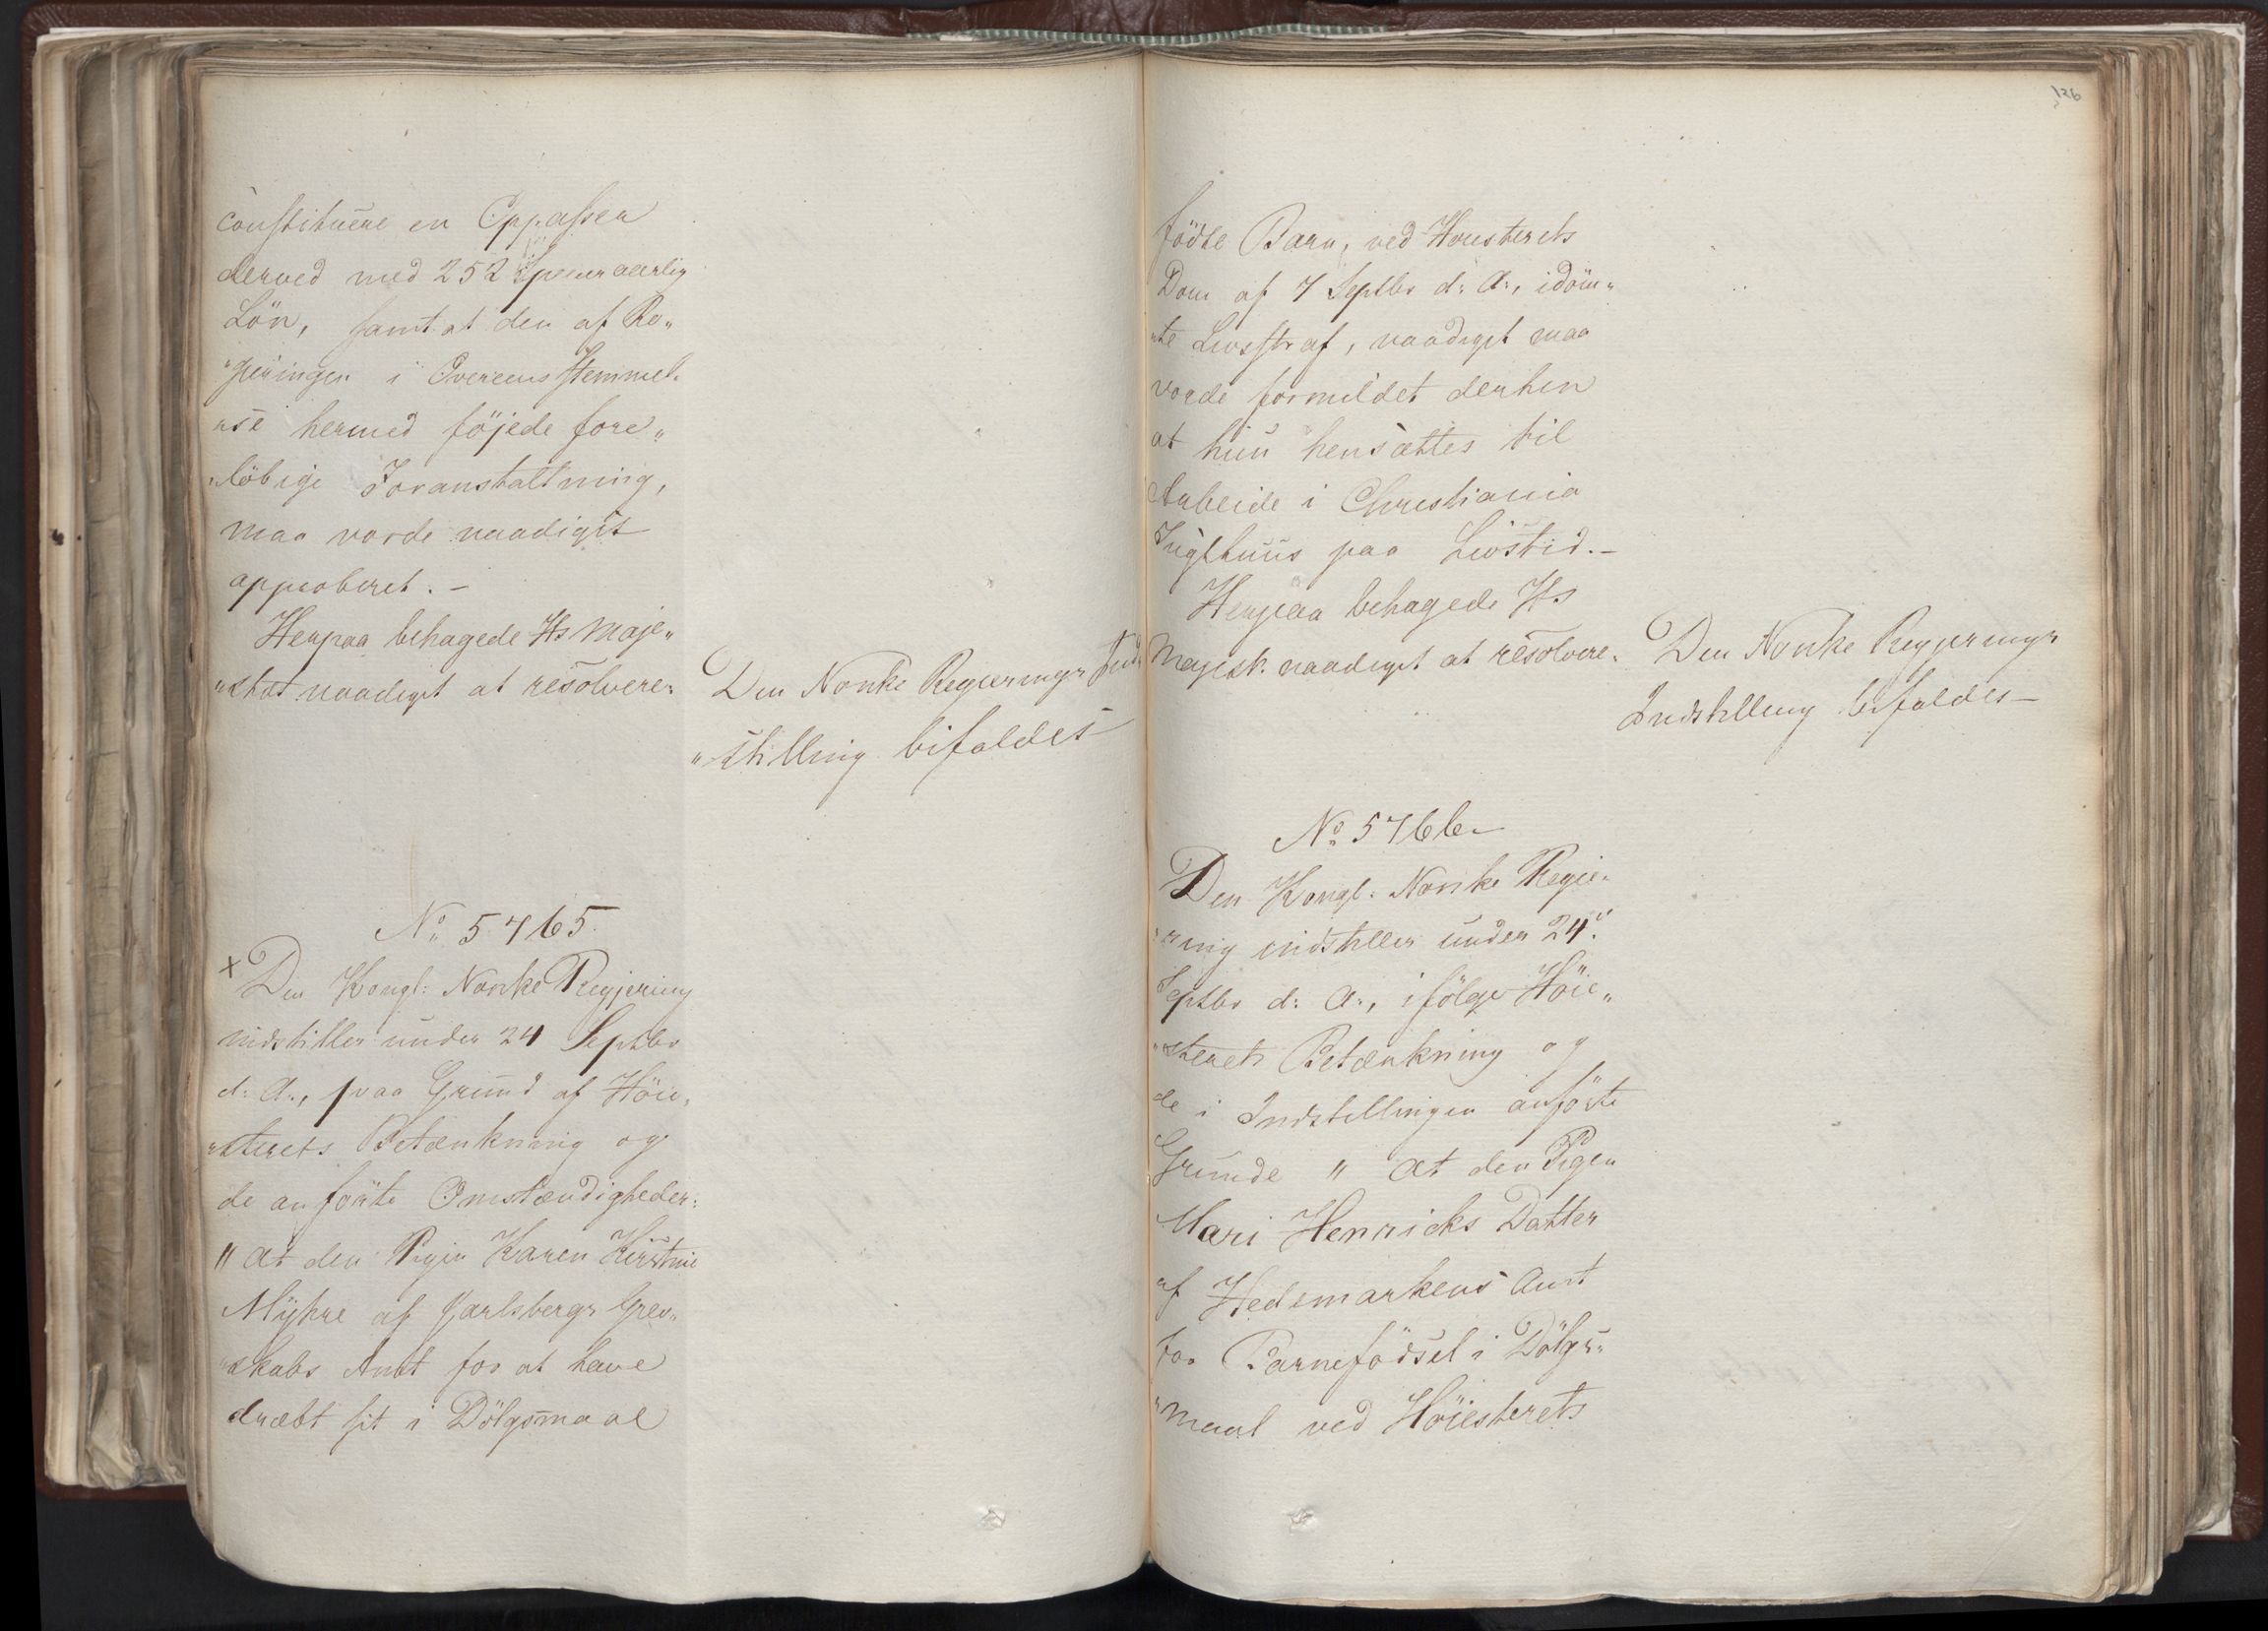 constituere en Oppasser
derved med 252 Specier aarlig
Lön, samt at den af Re„
„gieringen i Overeensstemmel„
„se hermed föjede fore„
„löbige Foranstaltning,
maa vorde naadigst
approberet. –
Herpaa behagede Hs Maje„
„stæt naadigst at resolvere:
Den Norske Regierings Ind„
„stilling bifaldes
No 5765.
x Den Kongl: Norske Regjering
indstiller under 24 Septbr
d: A:, paa Grund af Höie„
„sterets Betænkning og
de anförte Omstændigheder:
" At den Pigen Karen Kirstine
Mÿhre af Jarlsbergs Grev„
„skabs Amt for at have
dræbt sit i Dölgsmaal
126
födte Barn, ved Höiesterets
Dom af 7 Septbr d: A:, idöm„
„te Livsstraf, naadigst maa
vorde formildet derhen
at hun hensættes til
Arbeide i Christiania
Tugthuus paa Livstid. –
Herpaa behagede Hs
Majest. naadigst at resolvere:
Den Norske Regjerings
Indstilling bifaldes –
No 5766 –
Den Kongl: Norske Regie„
„ring indstiller under 24.
Septbr d: A:, ifölge Höie„
„sterets Betænkning og
de i Indstillingen anförte
Grunde " At den Pigen
Mari Henricks Datter
af Hedemarkens Amt
for Barnefödsel i Dölgs„
„maal ved Höiesterets